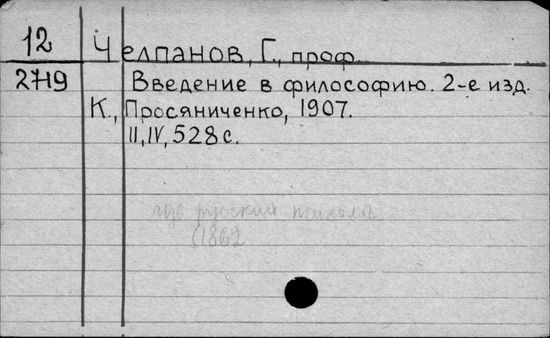 12
Челпанов, Г., проф.
2719
Введение в философию. 2-е изд.
К., Просяниченко, 1907.
II, IV, 528 с.
русский
(1862